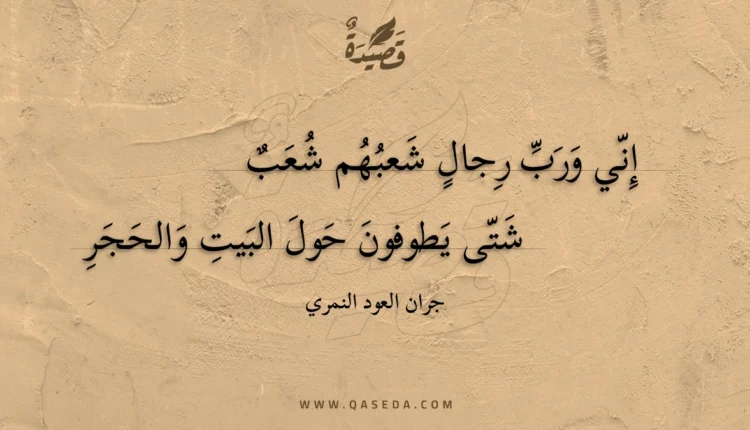 قَصِيْدَةٌ
إِنّي وَرَبِّ رِجالٍ شَعبُهُم شُعَبٌ
شَتّى يَطوفونَ حَولَ البَيتِ وَالحَجَرِ
جران العود النمري
WWW.QASEDA.COM